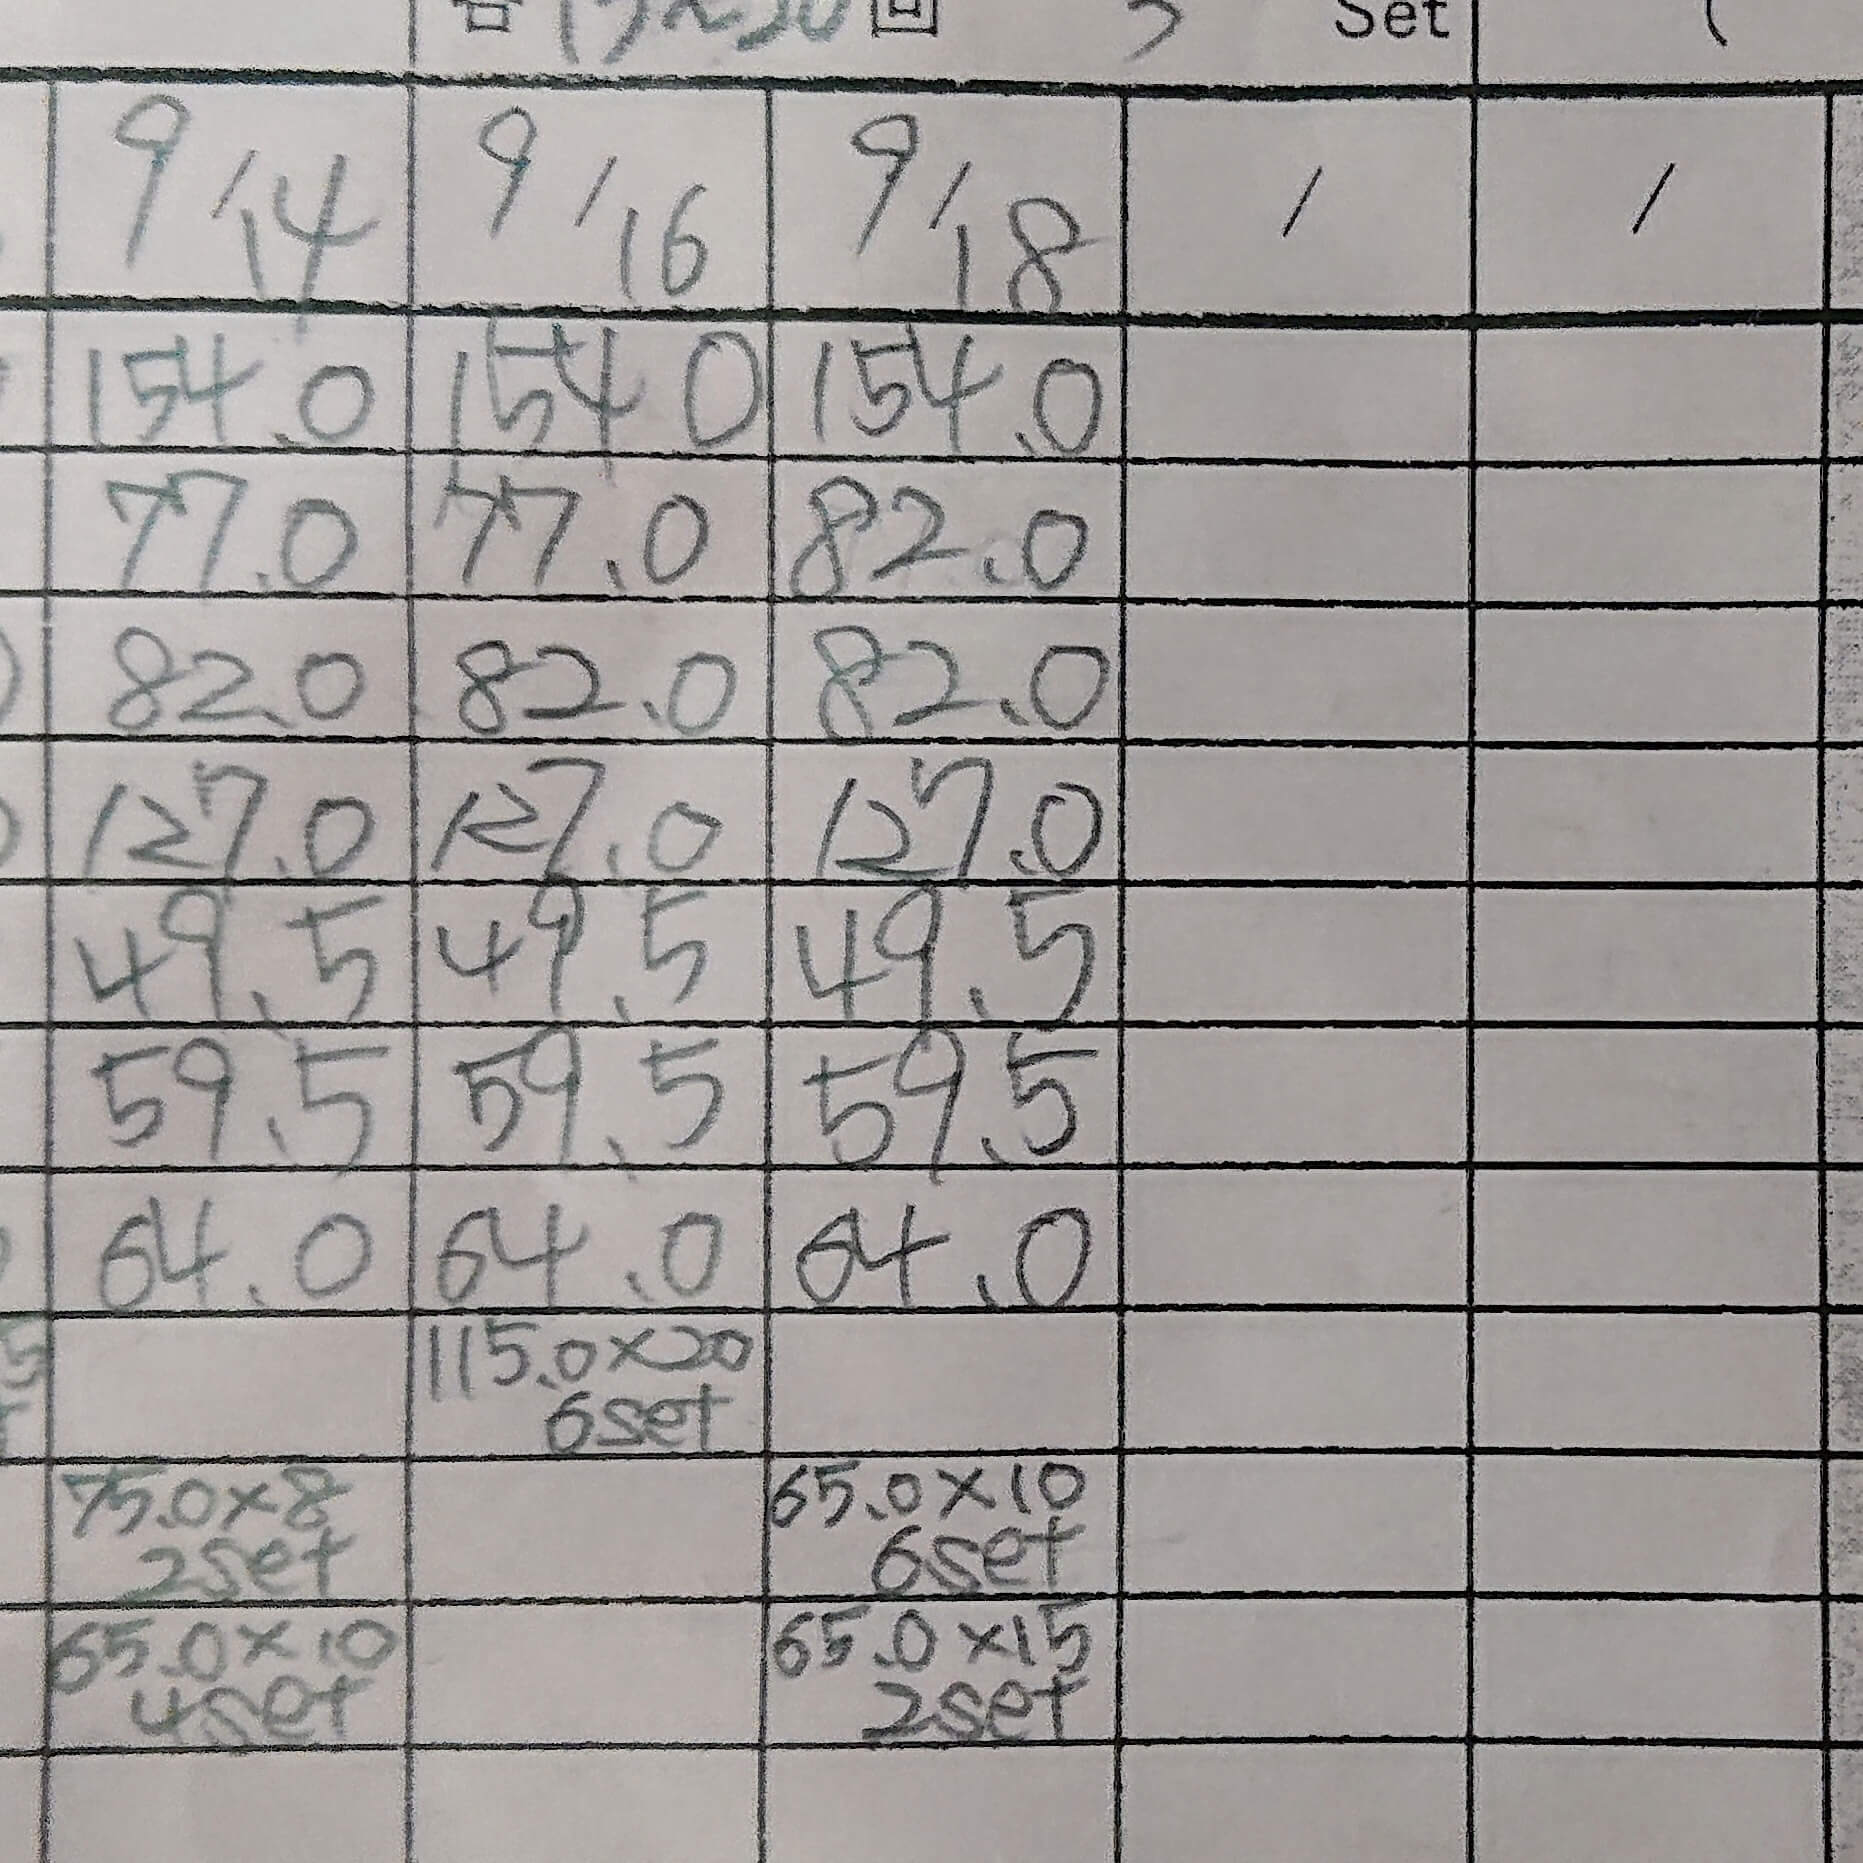 各15~20回 3 Set (
9/14 9/16 9/18 / /
154.0 154.0 154.0
77.0 77.0 82.0
82.0 82.0 82.0
127.0 127.0 127.0
49.5 49.5 49.5
59.5 59.5 59.5
64.0 64.0 64.0
115.0×20
6set
75.0×8 65.0×10
2set 6set
65.0×10 65.0×15
4set 2set